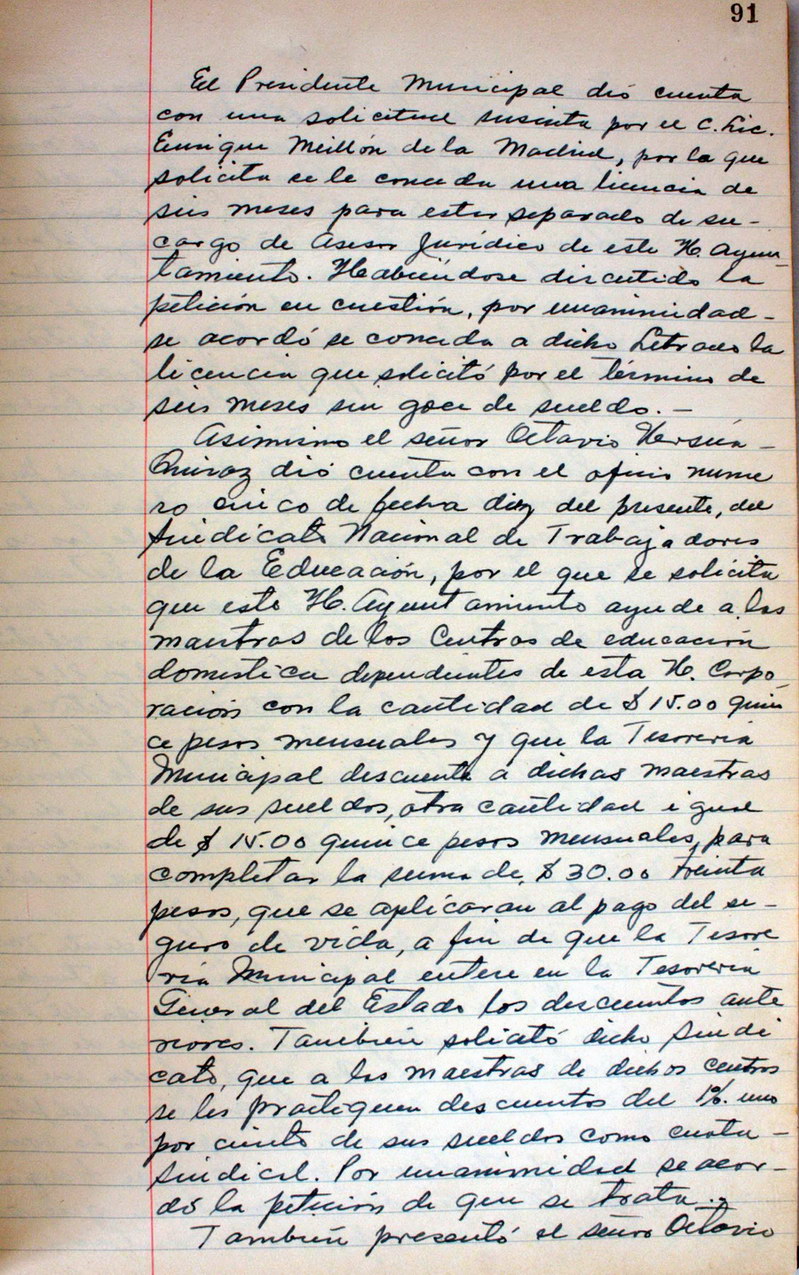 91
El Presidente Municipal dió cuenta
con una solicitud suscrita por el C. Lic.
Enrique Meillón de la Madrid, por la que
solicita se le conceda una licencia de
seis meses para estar separado de su-
cargo de Asesor Jurídico de este H. Ayun
tamiento. Habiéndose discutido la
petición en cuestión, por unanimidad-
se acordó se conceda a dicho Letrado la
licencia que solicitó por el término de
seis meses sin goce de sueldo.-
Asimismo el señor Octavio
dió cuenta con el oficio nume
ro cinco de fecha diez del presente, del
Sindicato Nacional de Trabajadores
de la Educación, por el que se solicita
que este H. Ayuntamiento ayude a las
maestras de los Centros de educación
domestica dependientes de esta H. Corpo
ración con la cantidad de $15.00 quin
ce pesos mensuales y que la Tesoreria
Municipal descuente a dichas maestras
de sus sueldos, otra cantidad igual
de $15.00 quince pesos mensuales, para
completar la suma de $30.00 treinta
pesos, que se aplicaran al pago del se-
guro de vida, a fin de que la Tesore
ria Municipal entere en la Tesoreria
General del Estado los descuentos ante
riores. También solicitó dicho Sindi
cato, que a las maestras de dichos centros
se les practiquen descuentos del 1%. uno
por ciento de sus sueldos como cuota-
sindical. Por unanimidad se acor-
dó la petición de que se trata.-
También presentó el señor Octavio